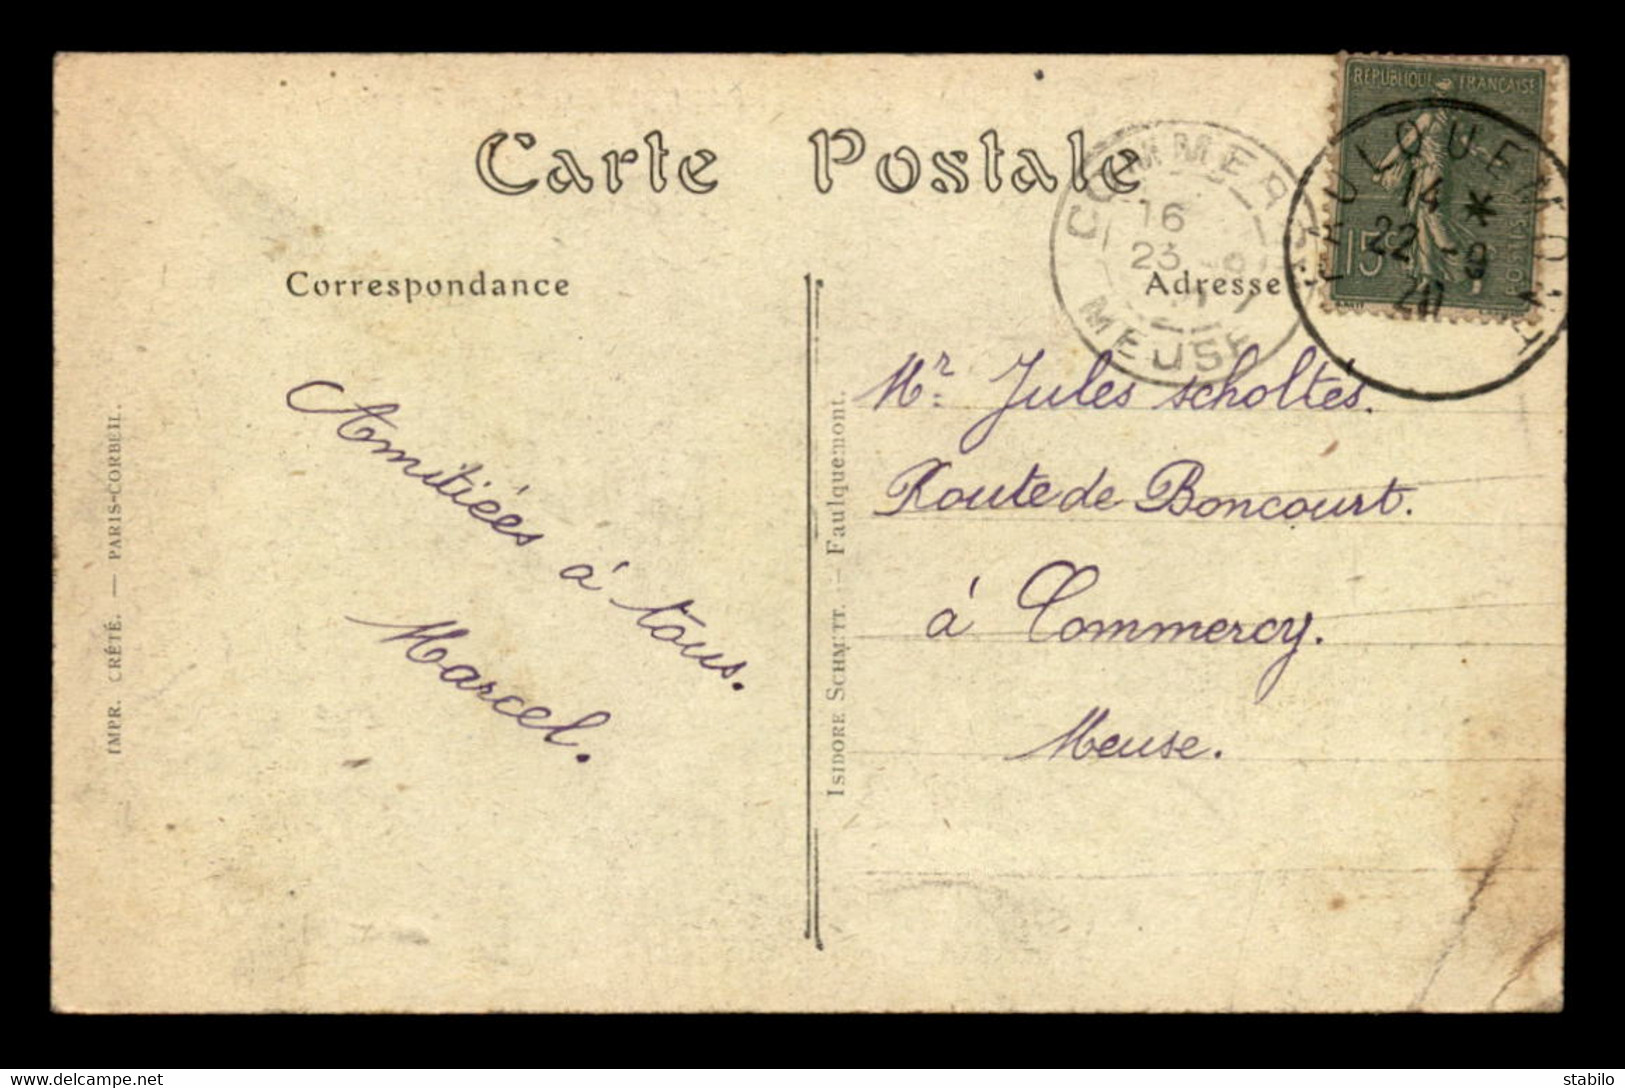 Carte Postale
Correspondance
Adresse
RÉPUBLIQUE FRANÇAISE
15c
POSTES
14 *
22 -9
20
COMMERCY
16
23 -9
MEUSE
Amitiées à tous.
Marcel.
Mr. Jules scholtès.
Route de Boncourt.
à Commercy.
Meuse.
ISIDORE SCHMITT. — Faulquemont.
IMPR. CRÉTÉ. — PARIS-CORBEIL.
www.delcampe.net
stabilo